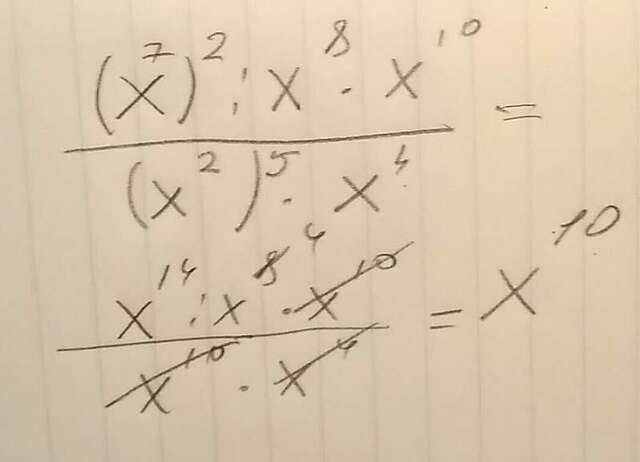 (x⁷)² : x⁸ · x¹⁰ =
(x²)⁵ · x⁴
x¹⁴ : x⁸ ⁴ · x¹⁰ = x¹⁰
x¹⁰ · x⁴